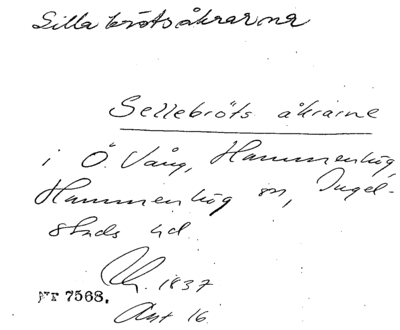 Silla brötsåkrarna
Sellebröts åkrarne
i Ö. Vång, Hammenhög,
Hammenhög sn, Ingel-
stads hd.
1837
Nr 7568.
Akt 16.